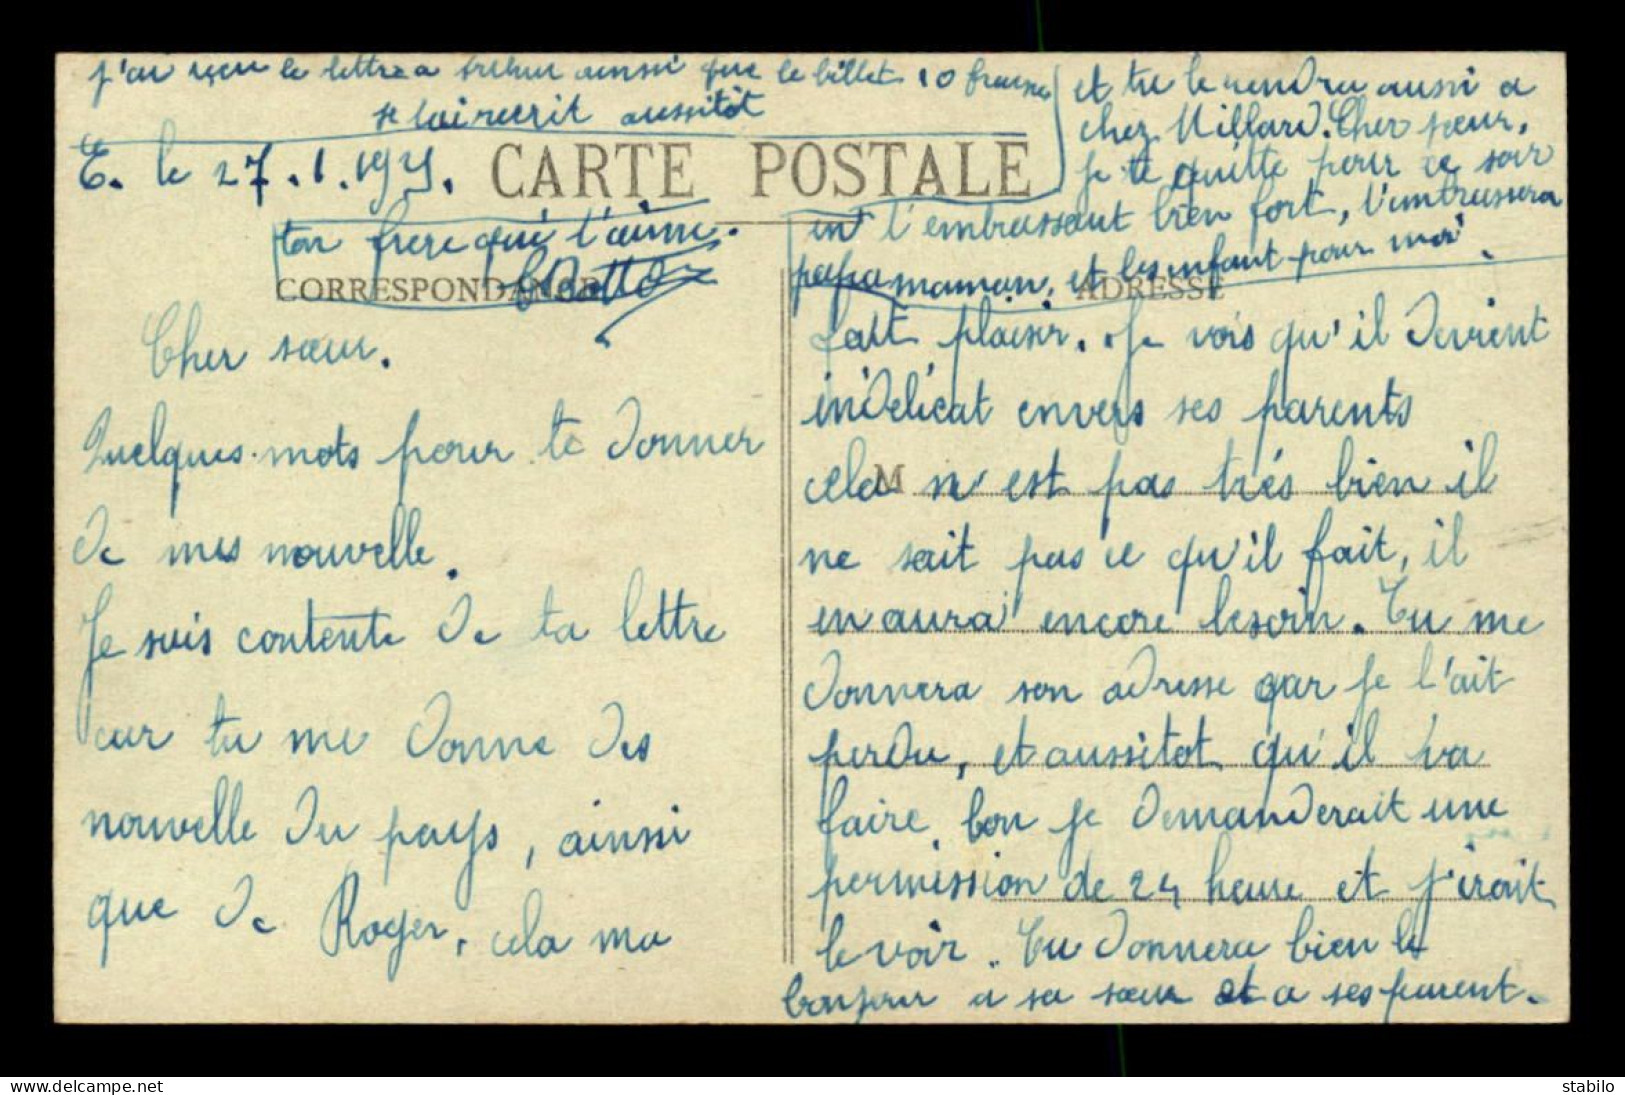 j'ai reçu la lettre a Arthur ainsi que le billet 10 francs
je lui récrit aussitôt
E. le 27.1.193
CARTE POSTALE
CORRESPONDANCE
ADRESSE
Cher sœur.
Quelques mots pour te donner
de mes nouvelle.
Je suis contente de ta lettre
car tu me donne des
nouvelle du pays, ainsi
que de Roger, cela ma
fait plaisir. Je vois qu'il devient
indélicat envers ses parents
cela n'est pas trés bien il
M
ne sait pas ce qu'il fait, il
en aura encore besoin. Tu me
donnera son adresse car je l'ait
perdu, et aussitot qu'il va
faire bon je demanderait une
permission de 24 heure et j'irait
le voir. Tu donnera bien le
bonjour a sa sœur et a ses parent.
et tu le rendra aussi a
chez Millard. Cher sœur,
je te quitte pour ce soir
en t'embrassant bien fort, t'embrassera
papa maman, et les enfant pour moi.
ton frere qui t'aime.